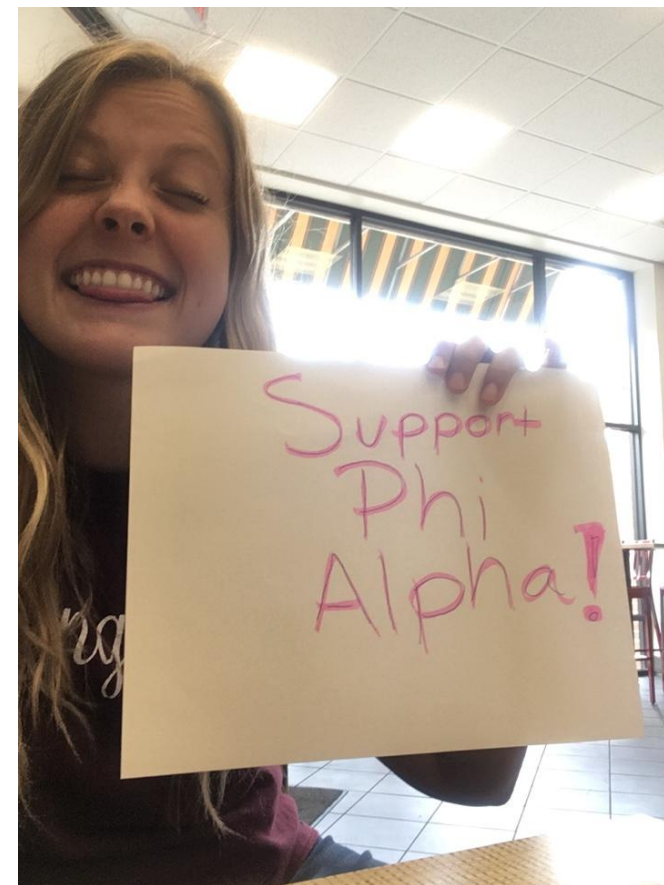 Support
Phi
Alpha!